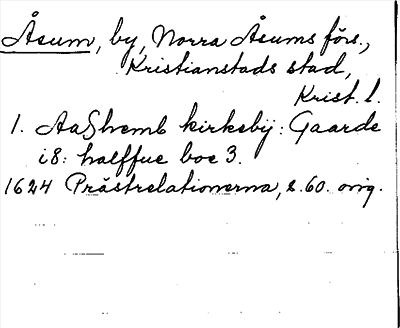 Åsum, by, Norra Åsums förs.,
Kristianstads stad,
Krist. l.
1. AaShemb kirkebij: Gaarde
i 8: halffue boe 3.
1624 Prästrelationerna, s. 60. orig.